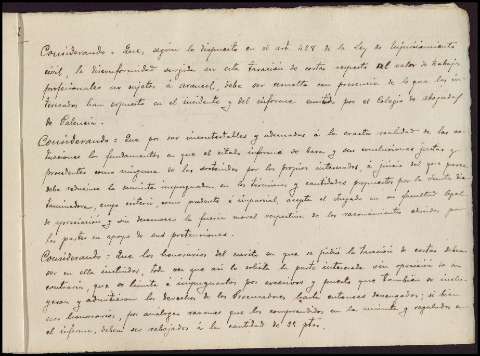 Considerando = Que, según lo dispuesto en el art. 428 de la Ley de Enjuiciamiento
civil, la disconformidad surgida en esta tasación de costas respecto del valor de trabajos
profesionales no sujetos á arancel, debe ser resuelta con presencia de lo que los in-
teresados han expuesto en el incidente y del informe emitido por el Colegio de Abogados
de Palencia.
Considerando = Que por ser incontestables y adecuados á la exacta realidad de las
los fundamentos en que el citado informe se basa y sus conclusiones justas y
procedentes como ninguna de las sostenidas por los propios interesados, á juicio del que provee
debe reducirse la minuta impugnada en los términos y cantidades propuestos por la Junta dic-
taminadora, cuyo criterio, como prudente é imparcial, acepta el Juzgado en su facultad legal
de apreciación y sin desconocer la fuerza moral respectiva de los razonamientos aducidos por
las partes en apoyo de sus pretensiones.
Considerando = Que los honorarios del escrito en que se pidió la tasación de costas deben
ser en ella incluidos, toda vez que así lo solicita la parte interesada sin oposición de su
contraria, que se limita á impugnarlos por excesivos y puesto que también se inclu-
yeron y admitieron los derechos de los Procuradores hasta entonces devengados; si bien
esos honorarios, por análogas razones que los comprendidos en la minuta y regulados en
el informe, deben ser rebajados á la cantidad de 25 ptas.